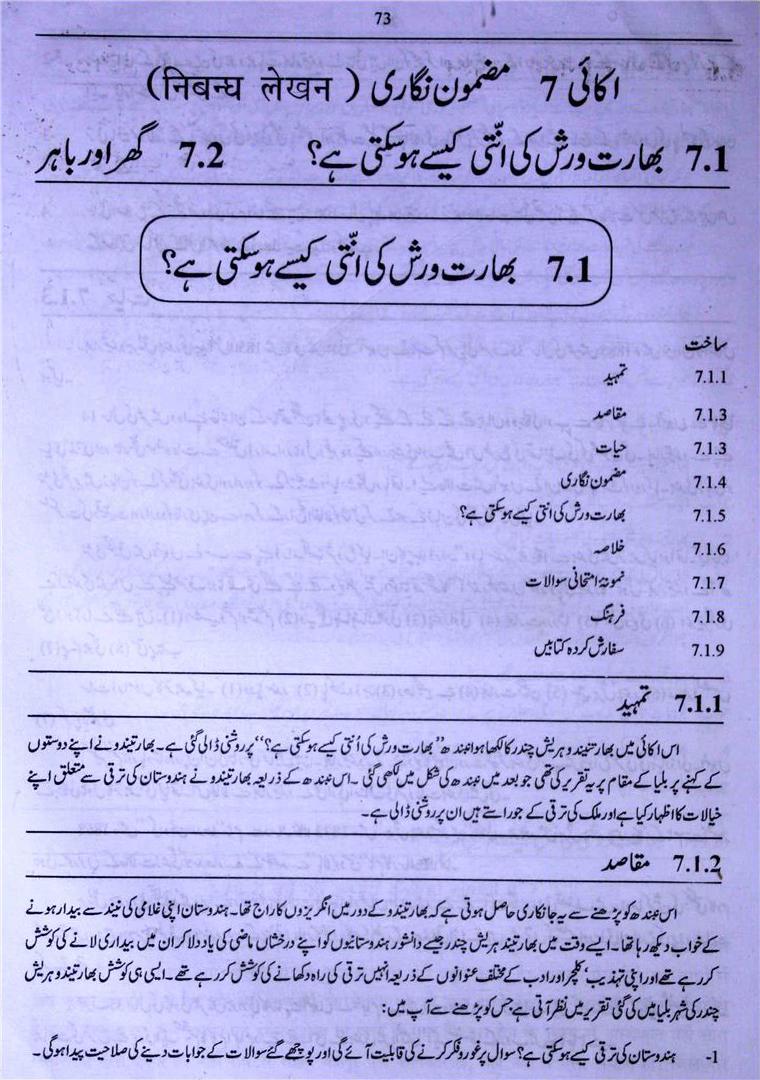 73
اکائی 7 مضمون نگاری ( निबन्ध लेखन)
7.1 بھارت ورش کی انّتی کیسے ہوسکتی ہے؟ 7.2 گھر اور باہر
7.1 بھارت ورش کی انّتی کیسے ہوسکتی ہے؟
ساخت
7.1.1 تمہید
7.1.3 مقاصد
7.1.3 حیات
7.1.4 مضمون نگاری
7.1.5 بھارت ورش کی انتی کیسے ہوسکتی ہے؟
7.1.6 خلاصہ
7.1.7 نمونۂ امتحانی سوالات
7.1.8 فرہنگ
7.1.9 سفارش کردہ کتابیں
7.1.1 تمہید
اس اکائی میں بھارتیندو ہریش چندر کا لکھا ہوا نبندھ ”بھارت ورش کی اُنتی کیسے ہوسکتی ہے؟“ پر روشنی ڈالی گئی ہے۔ بھارتیندو نے اپنے دوستوں
کے کہنے پر بلیا کے مقام پر یہ تقریر کی تھی جو بعد میں نبندھ کی شکل میں لکھی گئی ۔ اس نبندھ کے ذریعہ بھارتیندو نے ہندوستان کی ترقی سے متعلق اپنے
خیالات کا اظہار کیا ہے اور ملک کی ترقی کے جو راستے ہیں ان پر روشنی ڈالی ہے۔
7.1.2 مقاصد
اس نبندھ کو پڑھنے سے یہ جانکاری حاصل ہوتی ہے کہ بھارتیندو کے دور میں انگریزوں کا راج تھا۔ ہندوستان اپنی غلامی کی نیند سے بیدار ہونے
کے خواب دیکھ رہا تھا۔ ایسے وقت میں بھارتیند ہریش چندر جیسے دانشور ہندوستانیوں کو اپنے درخشاں ماضی کی یاد دلا کر ان میں بیداری لانے کی کوشش
کر رہے تھے اور اپنی تہذیب‘ کلچر اور ادب کے مختلف عنوانوں کے ذریعہ انہیں ترقی کی راہ دکھانے کی کوشش کر رہے تھے۔ ایسی ہی کوشش بھارتیندو ہریش
چندر کی شہر بلیا میں کی گئی تقریر میں نظر آتی ہے جس کو پڑھنے سے آپ میں:
1- ہندوستان کی ترقی کیسے ہوسکتی ہے؟ سوال پر غور و فکر کرنے کی قابلیت آئے گی اور پوچھے گئے سوالات کے جوابات دینے کی صلاحیت پیدا ہوگی ۔